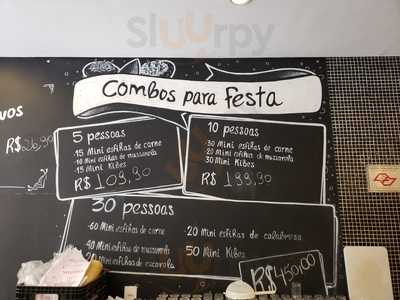 Sluurpy
Combos para Festa
vos
R$26,90
5 pessoas
15 Mini esfihas de carne
10 Mini esfihas de mussarela
15 Mini Kibes
R$ 109,90
10 pessoas
30 Mini esfihas de carne
20 Mini esfihas de mussarela
30 Mini Kibes
R$ 199,90
30 pessoas
60 Mini esfihas de carne
40 Mini esfihas de mussarela
20 Mini esfihas de escarola
20 Mini esfihas de calabresa
50 Mini Kibes
R$450,00